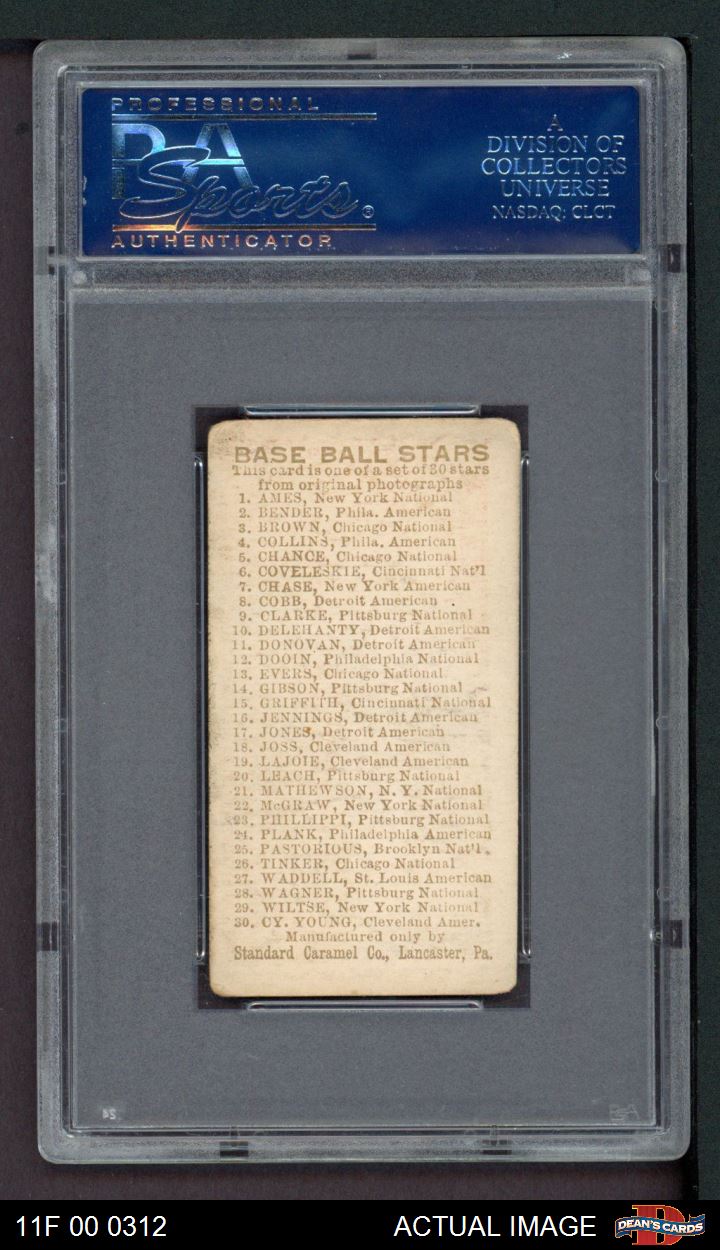 PROFESSIONAL
PSA
Sports®
AUTHENTICATOR
A
DIVISION OF
COLLECTORS
UNIVERSE
NASDAQ: CLCT
BASE BALL STARS
This card is one of a set of 30 stars
from original photographs
1. AMES, New York National
2. BENDER, Phila. American
3. BROWN, Chicago National
4. COLLINS, Phila. American
5. CHANCE, Chicago National
6. COVELESKIE, Cincinnati Nat'l
7. CHASE, New York American
8. COBB, Detroit American
9. CLARKE, Pittsburg National
10. DELEHANTY, Detroit American
11. DONOVAN, Detroit American
12. DOOIN, Philadelphia National
13. EVERS, Chicago National
14. GIBSON, Pittsburg National
15. GRIFFITH, Cincinnati National
16. JENNINGS, Detroit American
17. JONES, Detroit American
18. JOSS, Cleveland American
19. LAJOIE, Cleveland American
20. LEACH, Pittsburg National
21. MATHEWSON, N. Y. National
22. McGRAW, New York National
23. PHILLIPPI, Pittsburg National
24. PLANK, Philadelphia American
25. PASTORIOUS, Brooklyn Nat'l.
26. TINKER, Chicago National
27. WADDELL, St. Louis American
28. WAGNER, Pittsburg National
29. WILTSE, New York National
30. CY. YOUNG, Cleveland Amer.
Manufactured only by
Standard Caramel Co., Lancaster, Pa.
PSA
11F 00 0312
ACTUAL IMAGE
DEAN'S CARDS